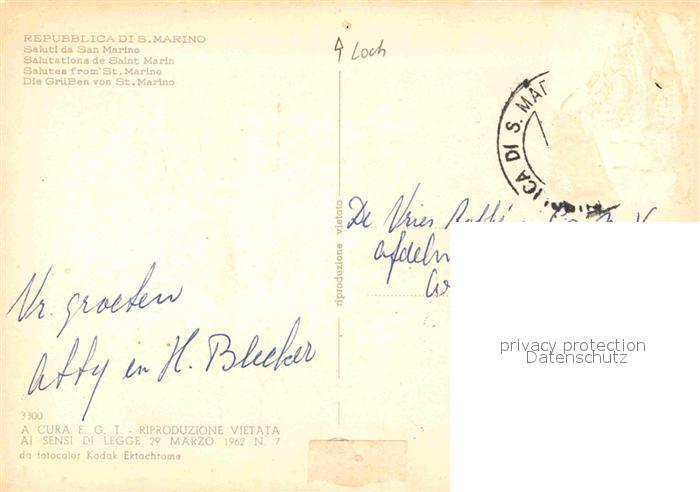 REPUBBLICA DI S. MARINO
Saluti da San Marino
Salutations de Saint Marin
Salutes from St. Marino
Die Grüßen von St. Marino
Loch
ICA DI S. MAR
riproduzione vietata
De Vries
afdeln
Vr. groeten
Atty en H. Bleeker
privacy protection
Datenschutz
3300
A CURA E. G. T. - RIPRODUZIONE VIETATA
AI SENSI DI LEGGE 29 MARZO 1962 N. 7
da fotocolor Kodak Ektachrome